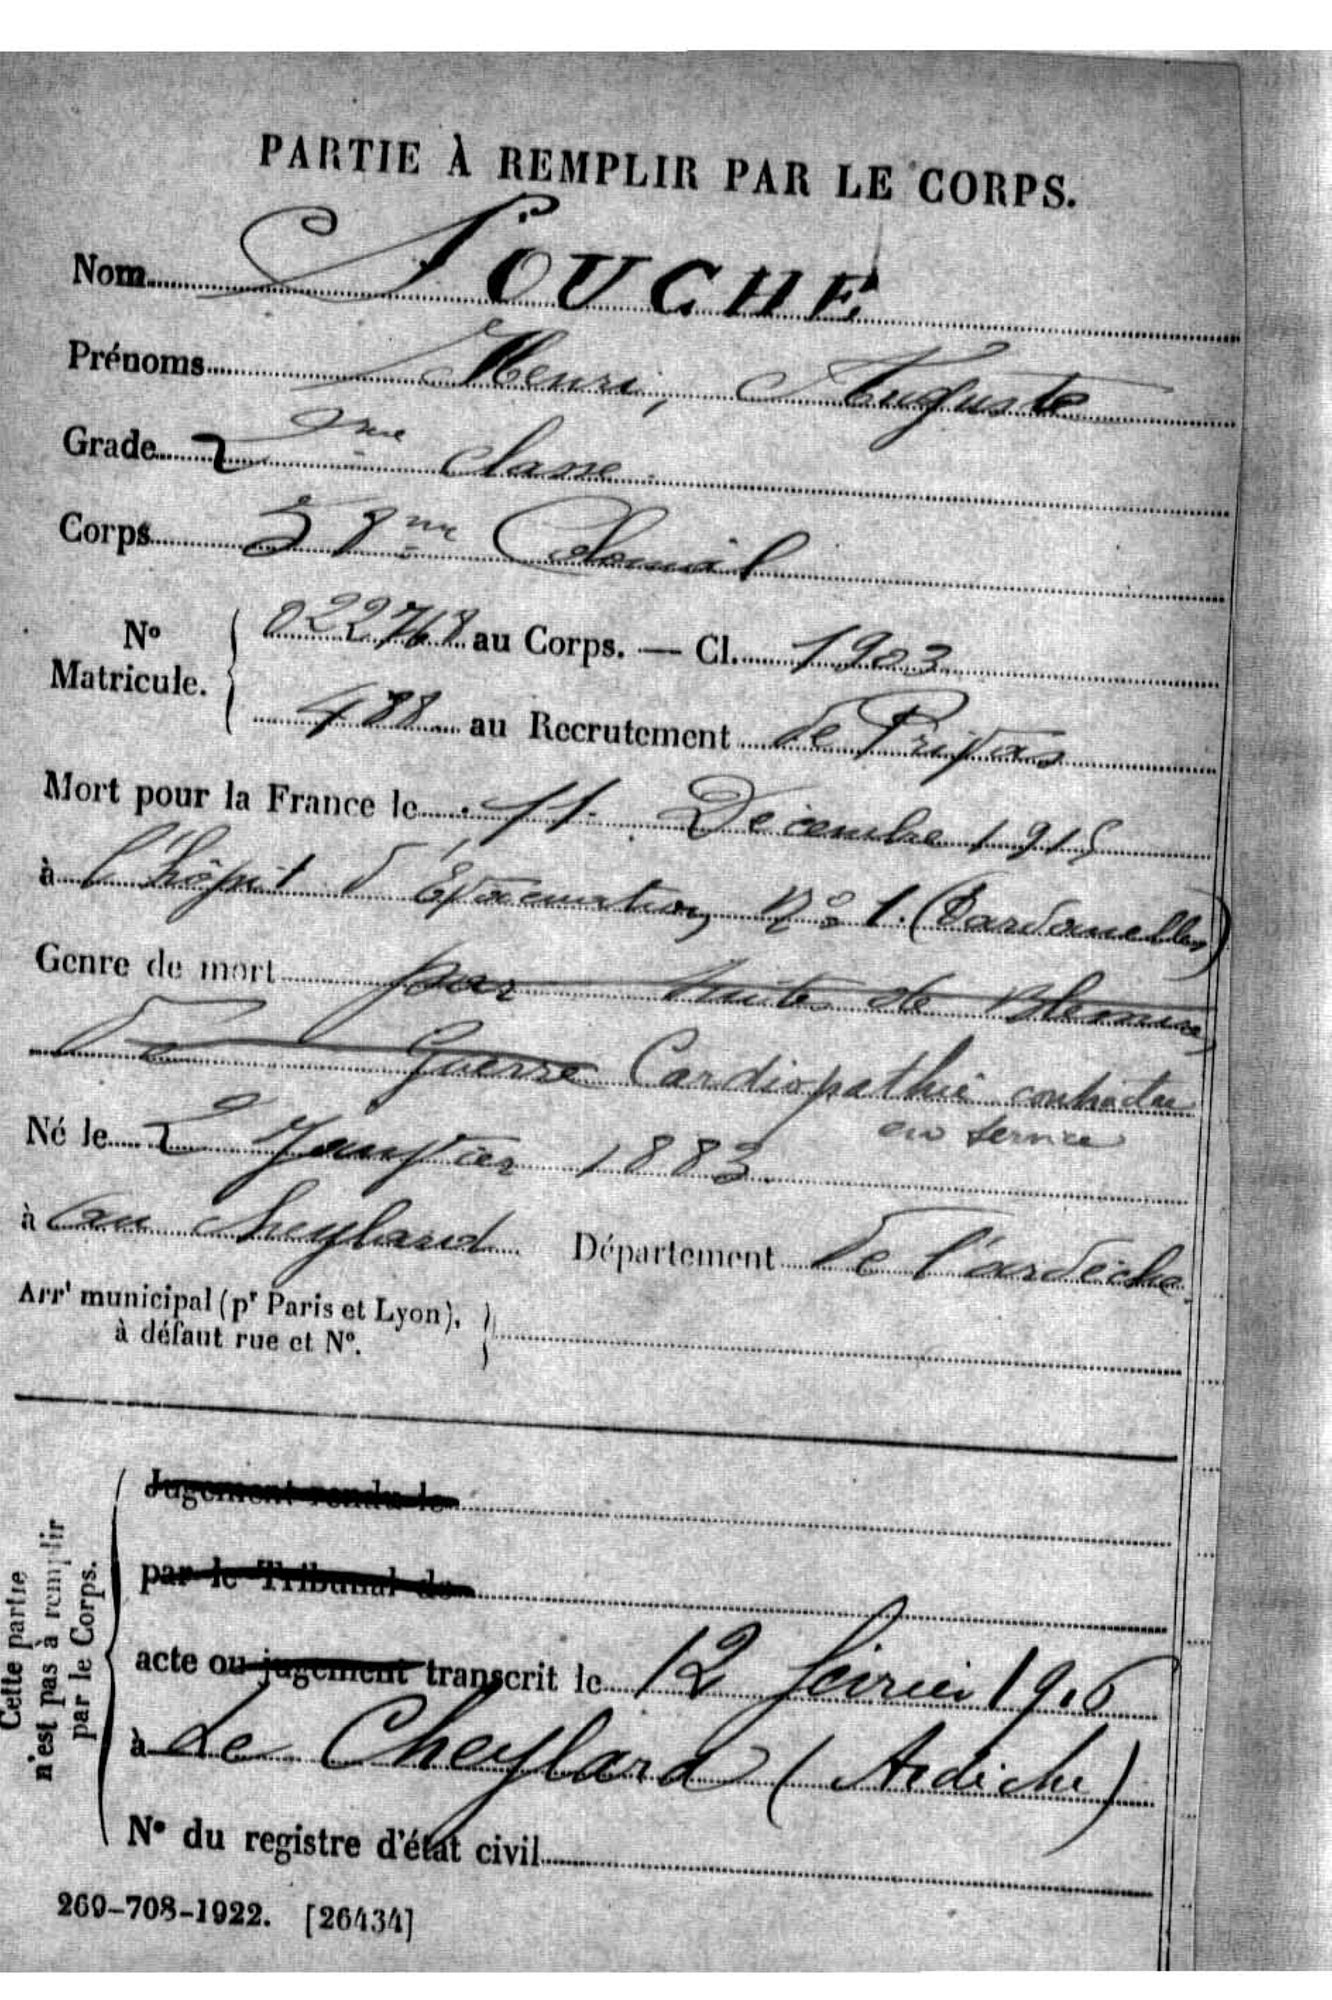 PARTIE À REMPLIR PAR LE CORPS.
Nom SOUCHE
Prénoms Henri, Auguste
Grade 2me classe
Corps 58me Colonial
No Matricule. 022768 au Corps. — Cl. 1903
488 au Recrutement de Privas
Mort pour la France le 11 Décembre 1915
à l'hôpit d'Évacuation No 1. (Dardanelles)
Genre de mort par suites de Blessures
de Guerre Cardiopathie contractée
en service
Né le 2 Janvier 1883
à au Cheylard Département de l'ardèche
Arrt municipal (pr Paris et Lyon),
à défaut rue et No.
Cette partie
n'est pas à remplir
par le Corps.
Jugement rendu le
par le Tribunal de
acte ou jugement transcrit le 12 février 1916
à Le Cheylard (Ardèche)
No du registre d'état civil
269-708-1922. [26434]